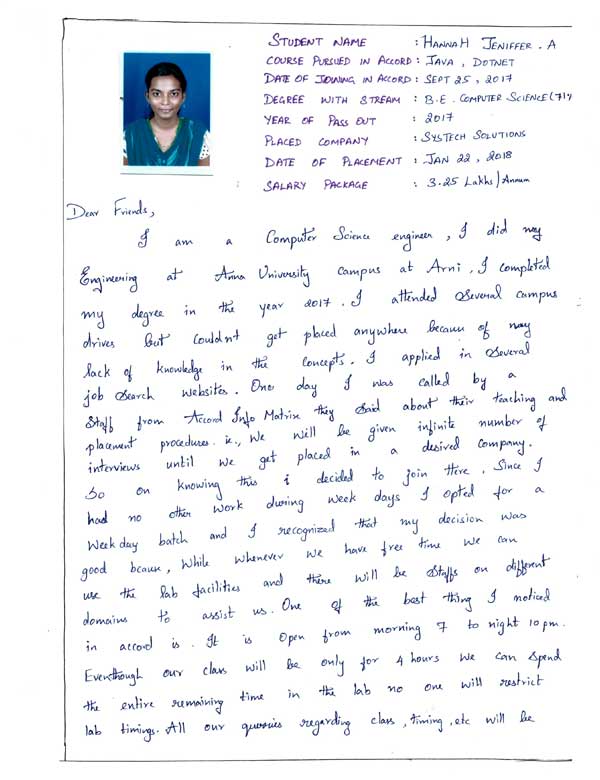 STUDENT NAME : HANNAH JENIFFER. A
COURSE PURSUED IN ACCORD : JAVA, DOTNET
DATE OF JOINING IN ACCORD : SEPT 25, 2017
DEGREE WITH STREAM : B.E. COMPUTER SCIENCE (71%
YEAR OF PASS OUT : 2017
PLACED COMPANY : SYSTECH SOLUTIONS
DATE OF PLACEMENT : JAN 22, 2018
SALARY PACKAGE : 3.25 Lakhs/Annum
Dear Friends,
I am a Computer Science engineer, I did my
Engineering at Anna University campus at Arni. I completed
my degree in the year 2017. I attended several campus
drives but couldn't get placed anywhere because of my
lack of knowledge in the concepts. I applied in several
job search websites. One day I was called by a
staff from Accord Info Matrix they said about their teaching and
placement procedures. ie., we will be given infinite number of
interviews until we get placed in a desired company.
So on knowing this i decided to join there. Since I
had no other work during week days I opted for a
weekday batch and I recognized that my decision was
good bcause, while whenever we have free time we can
use the lab facilities and there will be staffs on different
domains to assist us. One of the best thing I noticed
in accord is. It is open from morning 7 to night 10 pm.
Eventhough our class will be only for 4 hours we can spend
the entire remaining time in the lab no one will restrict
lab timings. All our queries regarding class, timing, etc will be